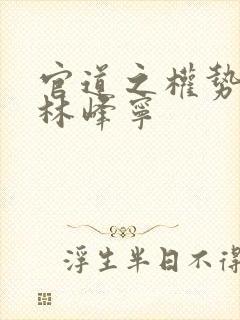 官道之權勢
林峰寧
浮生半日不得